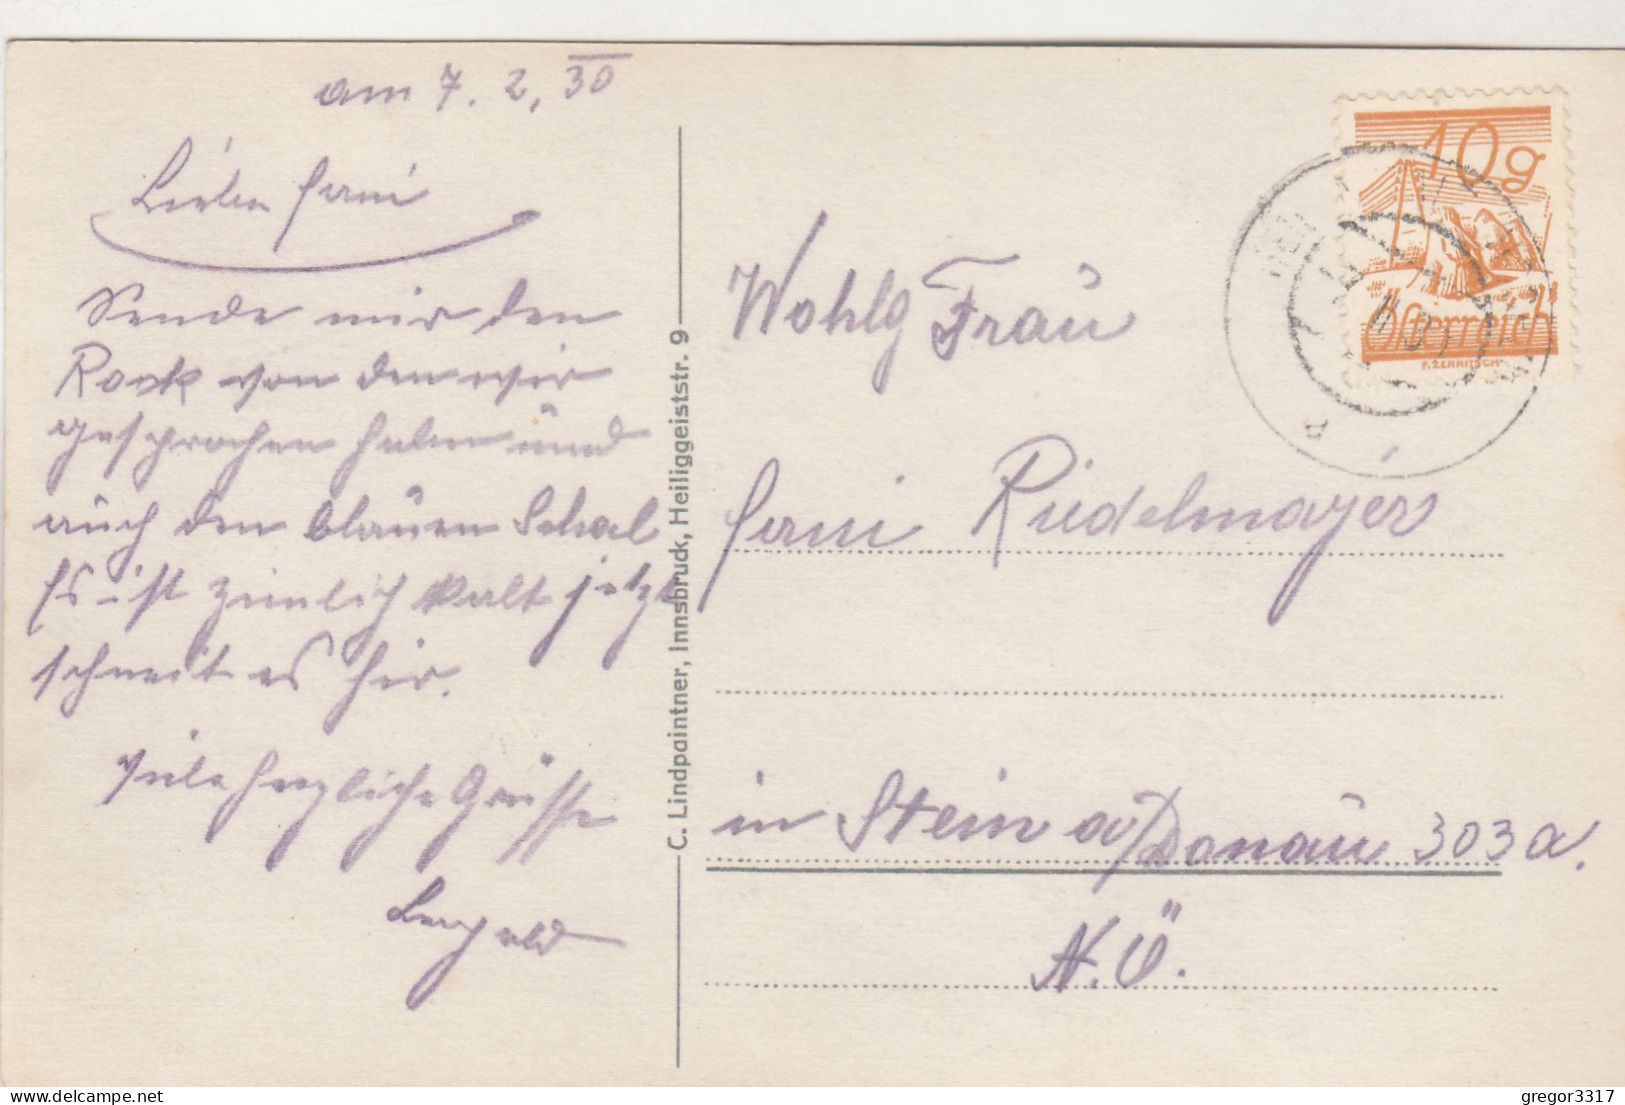 am 7. 2, 30
Liebe Fani
Sende mir den
Rock von den wir
gesprochen haben und
auch den blauen Schal
Es ist zimlich kalt jetzt
schneit es hir.
Viele herzliche Grüsse
Leopold
C. Lindpaintner, Innsbruck, Heiliggeiststr. 9
10g
Österreich
Wohlg Frau
Fani Riedelmayer
in Stein a/Donau 303 a.
N.Ö.
gregor3317